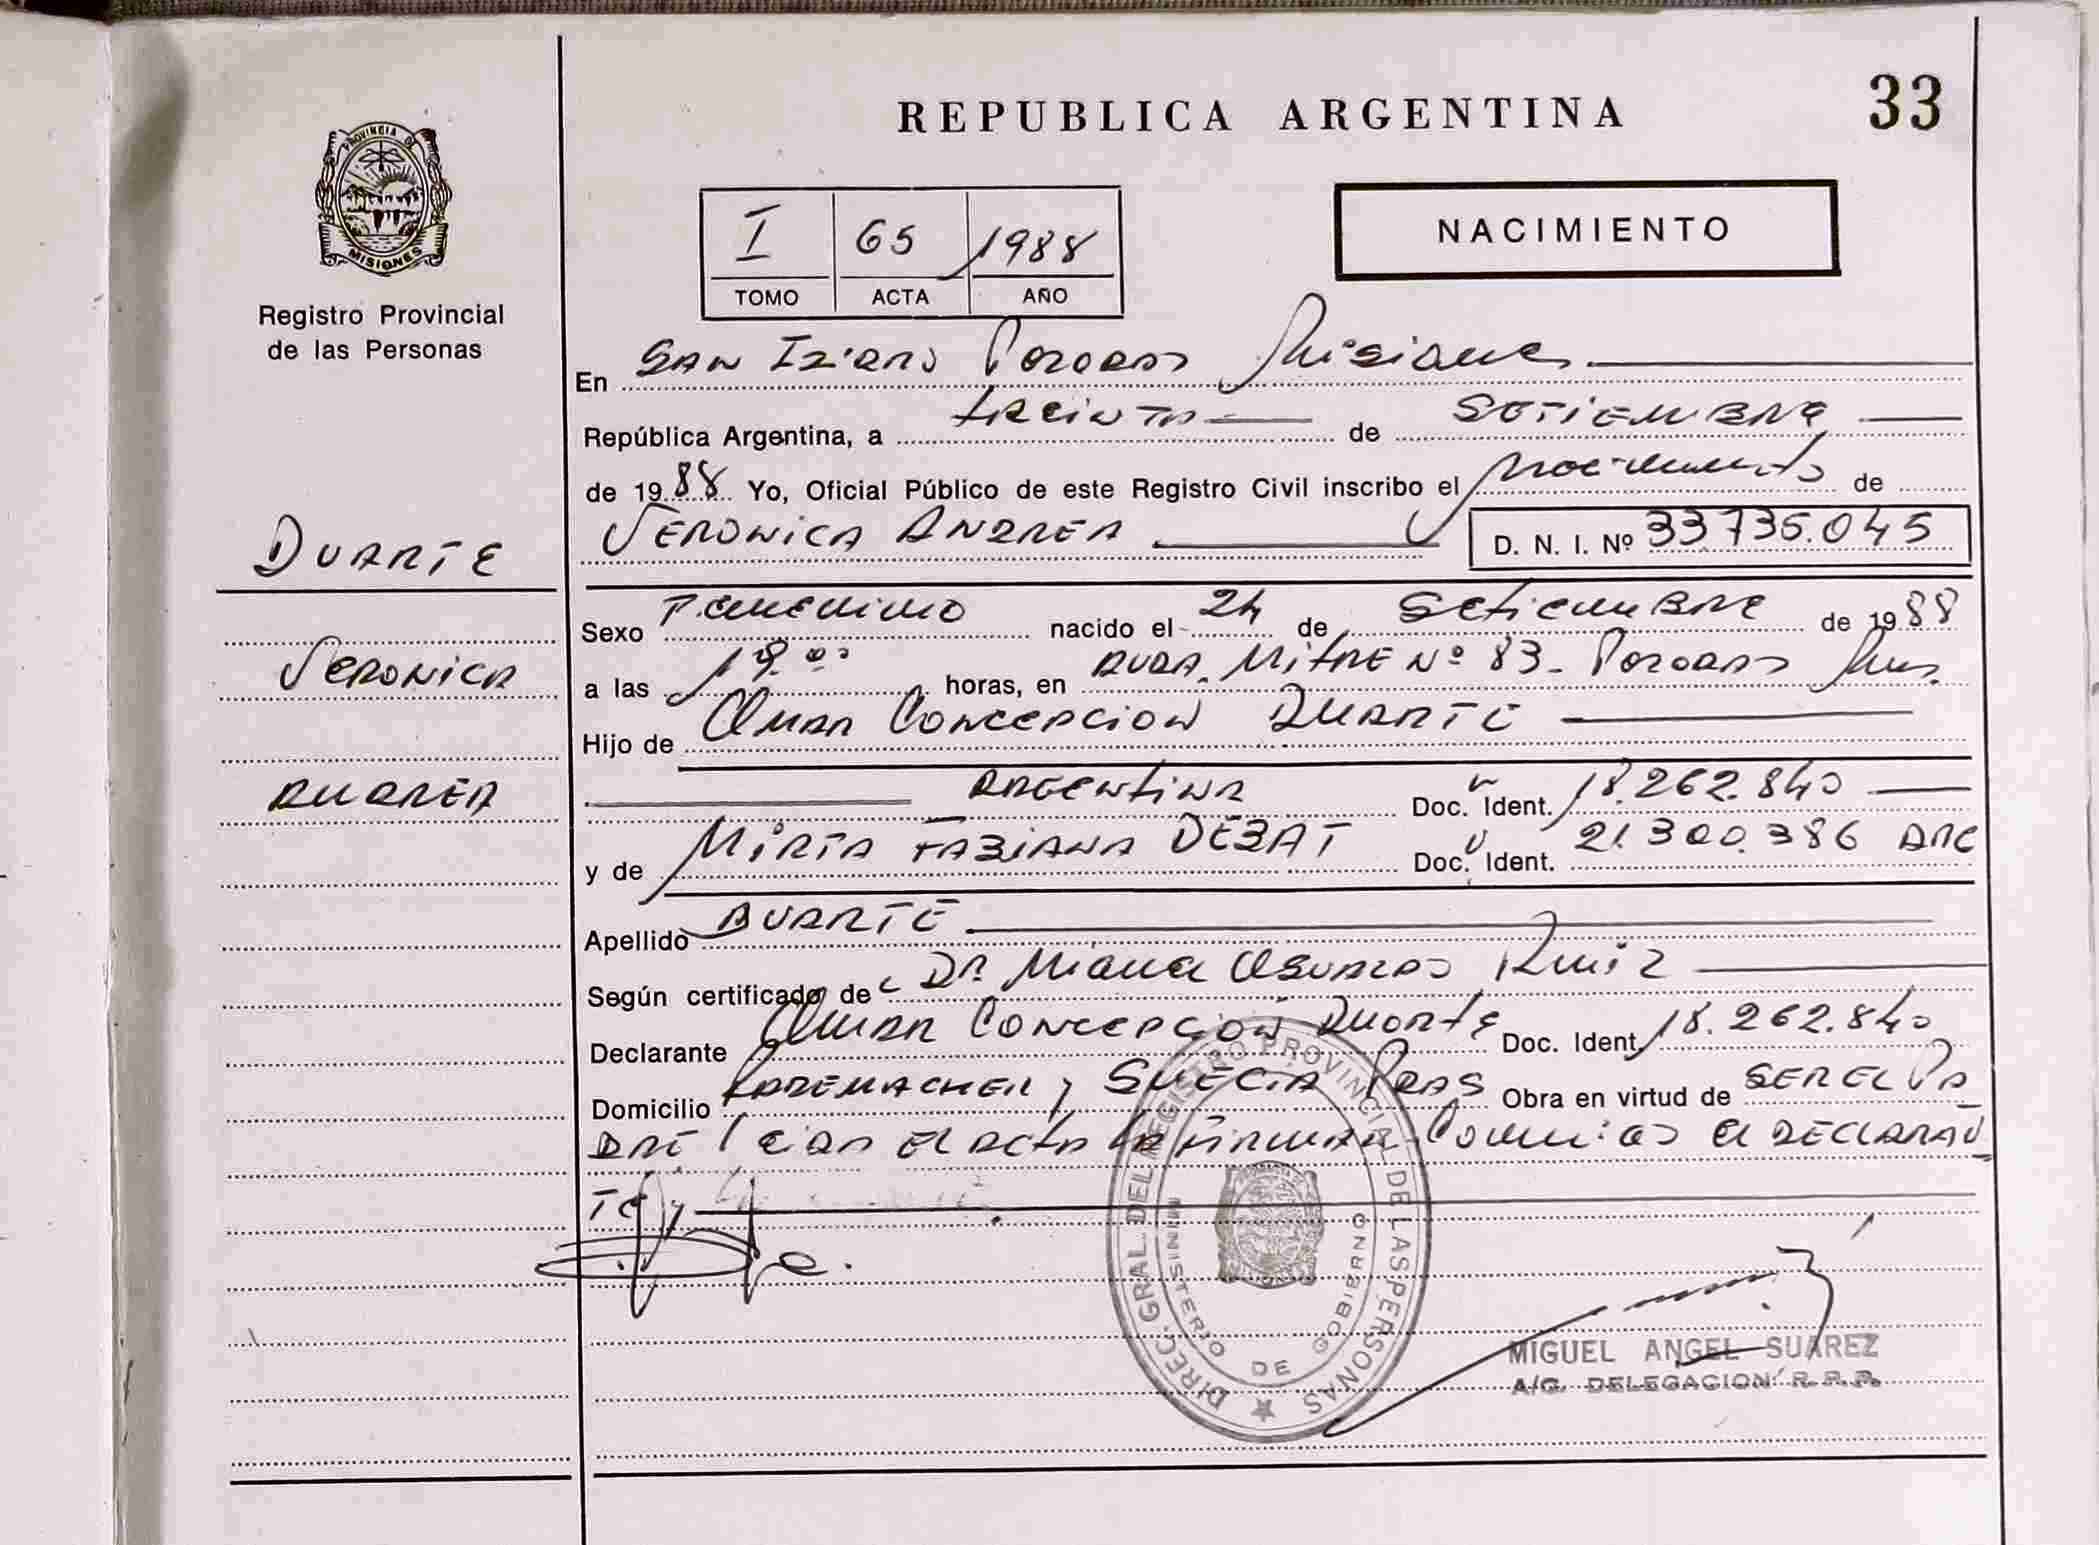 REPUBLICA ARGENTINA
33
PROVINCIA DE
MISIONES
Registro Provincial
de las Personas
I 65 1988
TOMO ACTA AÑO
NACIMIENTO
En San Isidro Posadas Misiones
República Argentina, a treinta de Setiembre
de 1988 Yo, Oficial Público de este Registro Civil inscribo el nacimiento de
VERONICA ANDREA D. N. I. Nº 33735.045
DUARTE
VERONICA
ANDREA
Sexo Femenino nacido el 24 de Setiembre de 1988
a las 19.00 horas, en AVDA. MITRE Nº 83- Posadas Mnes.
Hijo de Omar Concepcion DUARTE
ARGENTINA Doc. Ident. 18.262.840
y de MIRTA FABIANA DEBAT Doc. Ident. 21.300.386 ARG
Apellido DUARTE
Según certificado de Dr. Osvaldo Ruiz
Declarante Omar Concepcion Duarte Doc. Ident. 18.262.840
Domicilio RADEMACHER y SUECIA Pdas Obra en virtud de SER EL PA
DRE Leida el acta la firman Conmigo el DECLARAN
TE y
DIREC. GRAL. DEL REGISTRO PROVINCIAL DE LAS PERSONAS
MINISTERIO DE GOBIERNO
MIGUEL ANGEL SUAREZ
A/C. DELEGACION R.P.P.